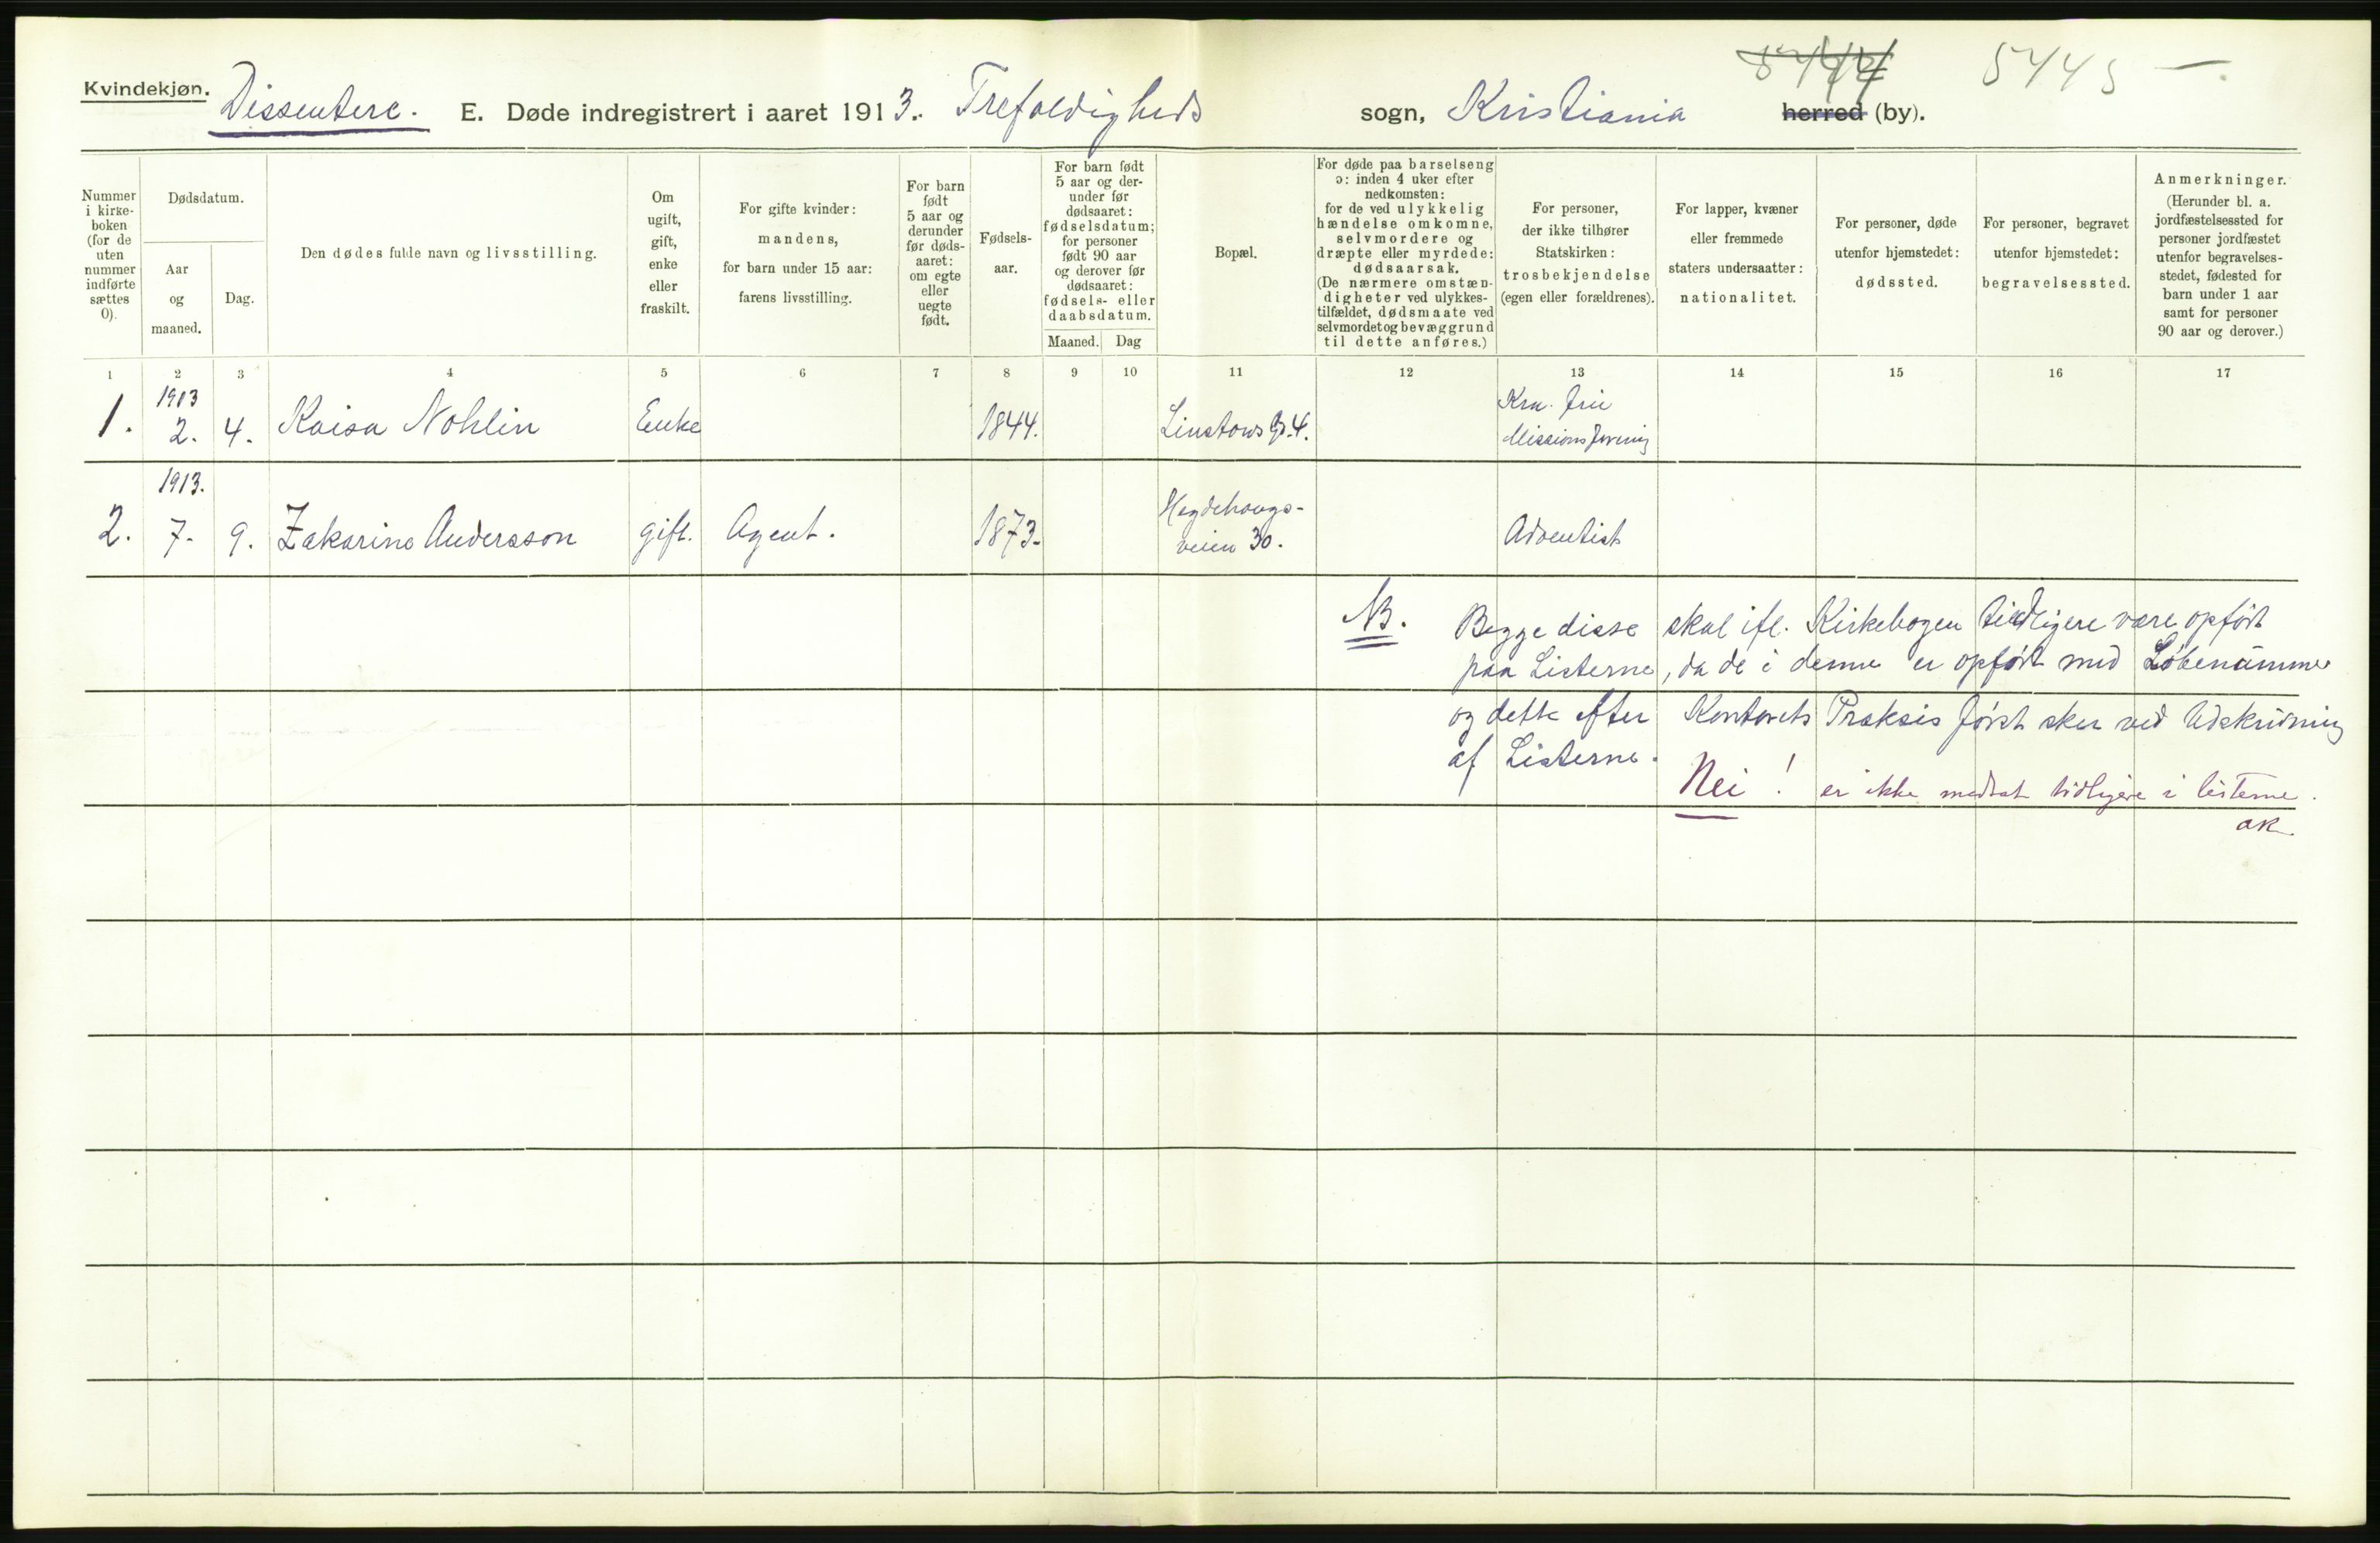 Kvindekjøn.
Dissentere.
E. Døde indregistrert i aaret 1913. Trefoldigheds sogn, Kristiania herred (by).
5445 —.
Nummer i kirke-boken (for de uten nummer indførte sættes 0).
Dødsdatum.
Aar og maaned.
Dag.
Den dødes fulde navn og livsstilling.
Om ugift, gift, enke eller fraskilt.
For gifte kvinder: mandens, for barn under 15 aar: farens livsstilling.
For barn født 5 aar og derunder før døds-aaret: om egte eller uegte født.
Fødsels-aar.
For barn født 5 aar og der-under før dødsaaret: fødselsdatum; for personer født 90 aar og derover før dødsaaret: fødsels- eller daabsdatum.
Maaned. Dag
Bopæl.
For døde paa barselseng ɔ: inden 4 uker efter nedkomsten: for de ved ulykkelig hændelse omkomne, selvmordere og dræpte eller myrdede: dødsaarsak. (De nærmere omstæn-digheter ved ulykkes-tilfældet, dødsmaate ved selvmordet og bevæggrund til dette anføres.)
For personer, der ikke tilhører Statskirken: trosbekjendelse (egen eller forældrenes).
For lapper, kvæner eller fremmede staters undersaatter: nationalitet.
For personer, døde utenfor hjemstedet: dødssted.
For personer, begravet utenfor hjemstedet: begravelsessted.
Anmerkninger. (Herunder bl. a. jordfæstelsessted for personer jordfæstet utenfor begravelses-stedet, fødested for barn under 1 aar samt for personer 90 aar og derover.)
1 2 3 4 5 6 7 8 9 10 11 12 13 14 15 16 17
1. 1913 2. 4. Kaisa Nohlin Enke 1844. Linstows G. 4. Kra. frie Missionsforening
2. 1913. 7. 9. Zakarine Andersson gift. Agent. 1873. Hegdehaugs-veien 30. Adventist
NB. Begge disse skal ifl. Kirkebogen tidligere være opført
paa Listerne, da de i denne er opført med Løbenummer
og dette efter Kontorets Praksis først sker ved Udskrivning
af Listerne.
Nei! er ikke medtat tidligere i listerne.